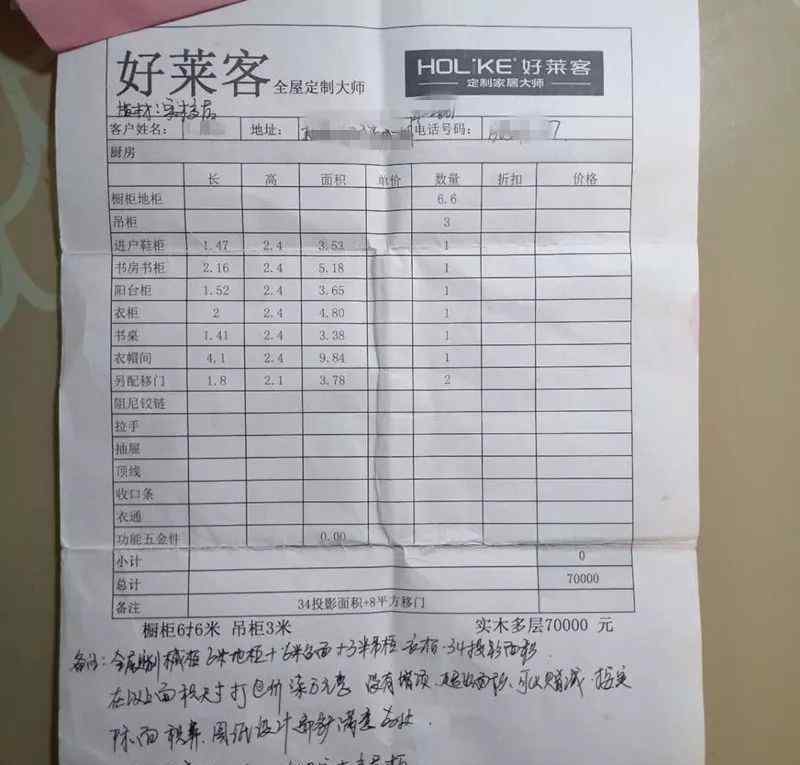 好莱客 全屋定制大师
HOLIKE 好莱客
定制家居大师
客户姓名： 地址： 电话号码：
厨房
长 高 面积 单价 数量 折扣 价格
橱柜地柜 6.6
吊柜 3
进户鞋柜 1.47 2.4 3.53 1
书房书柜 2.16 2.4 5.18 1
阳台柜 1.52 2.4 3.65 1
衣柜 2 2.4 4.80 1
书桌 1.41 2.4 3.38 1
衣帽间 4.1 2.4 9.84 1
另配移门 1.8 2.1 3.78 2
阻尼铰链
拉手
抽屉
顶线
收口条
衣通
功能五金件 0.00
小计 0
总计 70000
备注 34投影面积+8平方移门
橱柜6.6米 吊柜3米 实木多层70000 元
备注：全屋 6米地柜+6米台面+3米吊柜 衣柜.34投影面积
在以上面积尺寸打包价柒万元整 没有增项
面积算.图纸设计 满意为止.